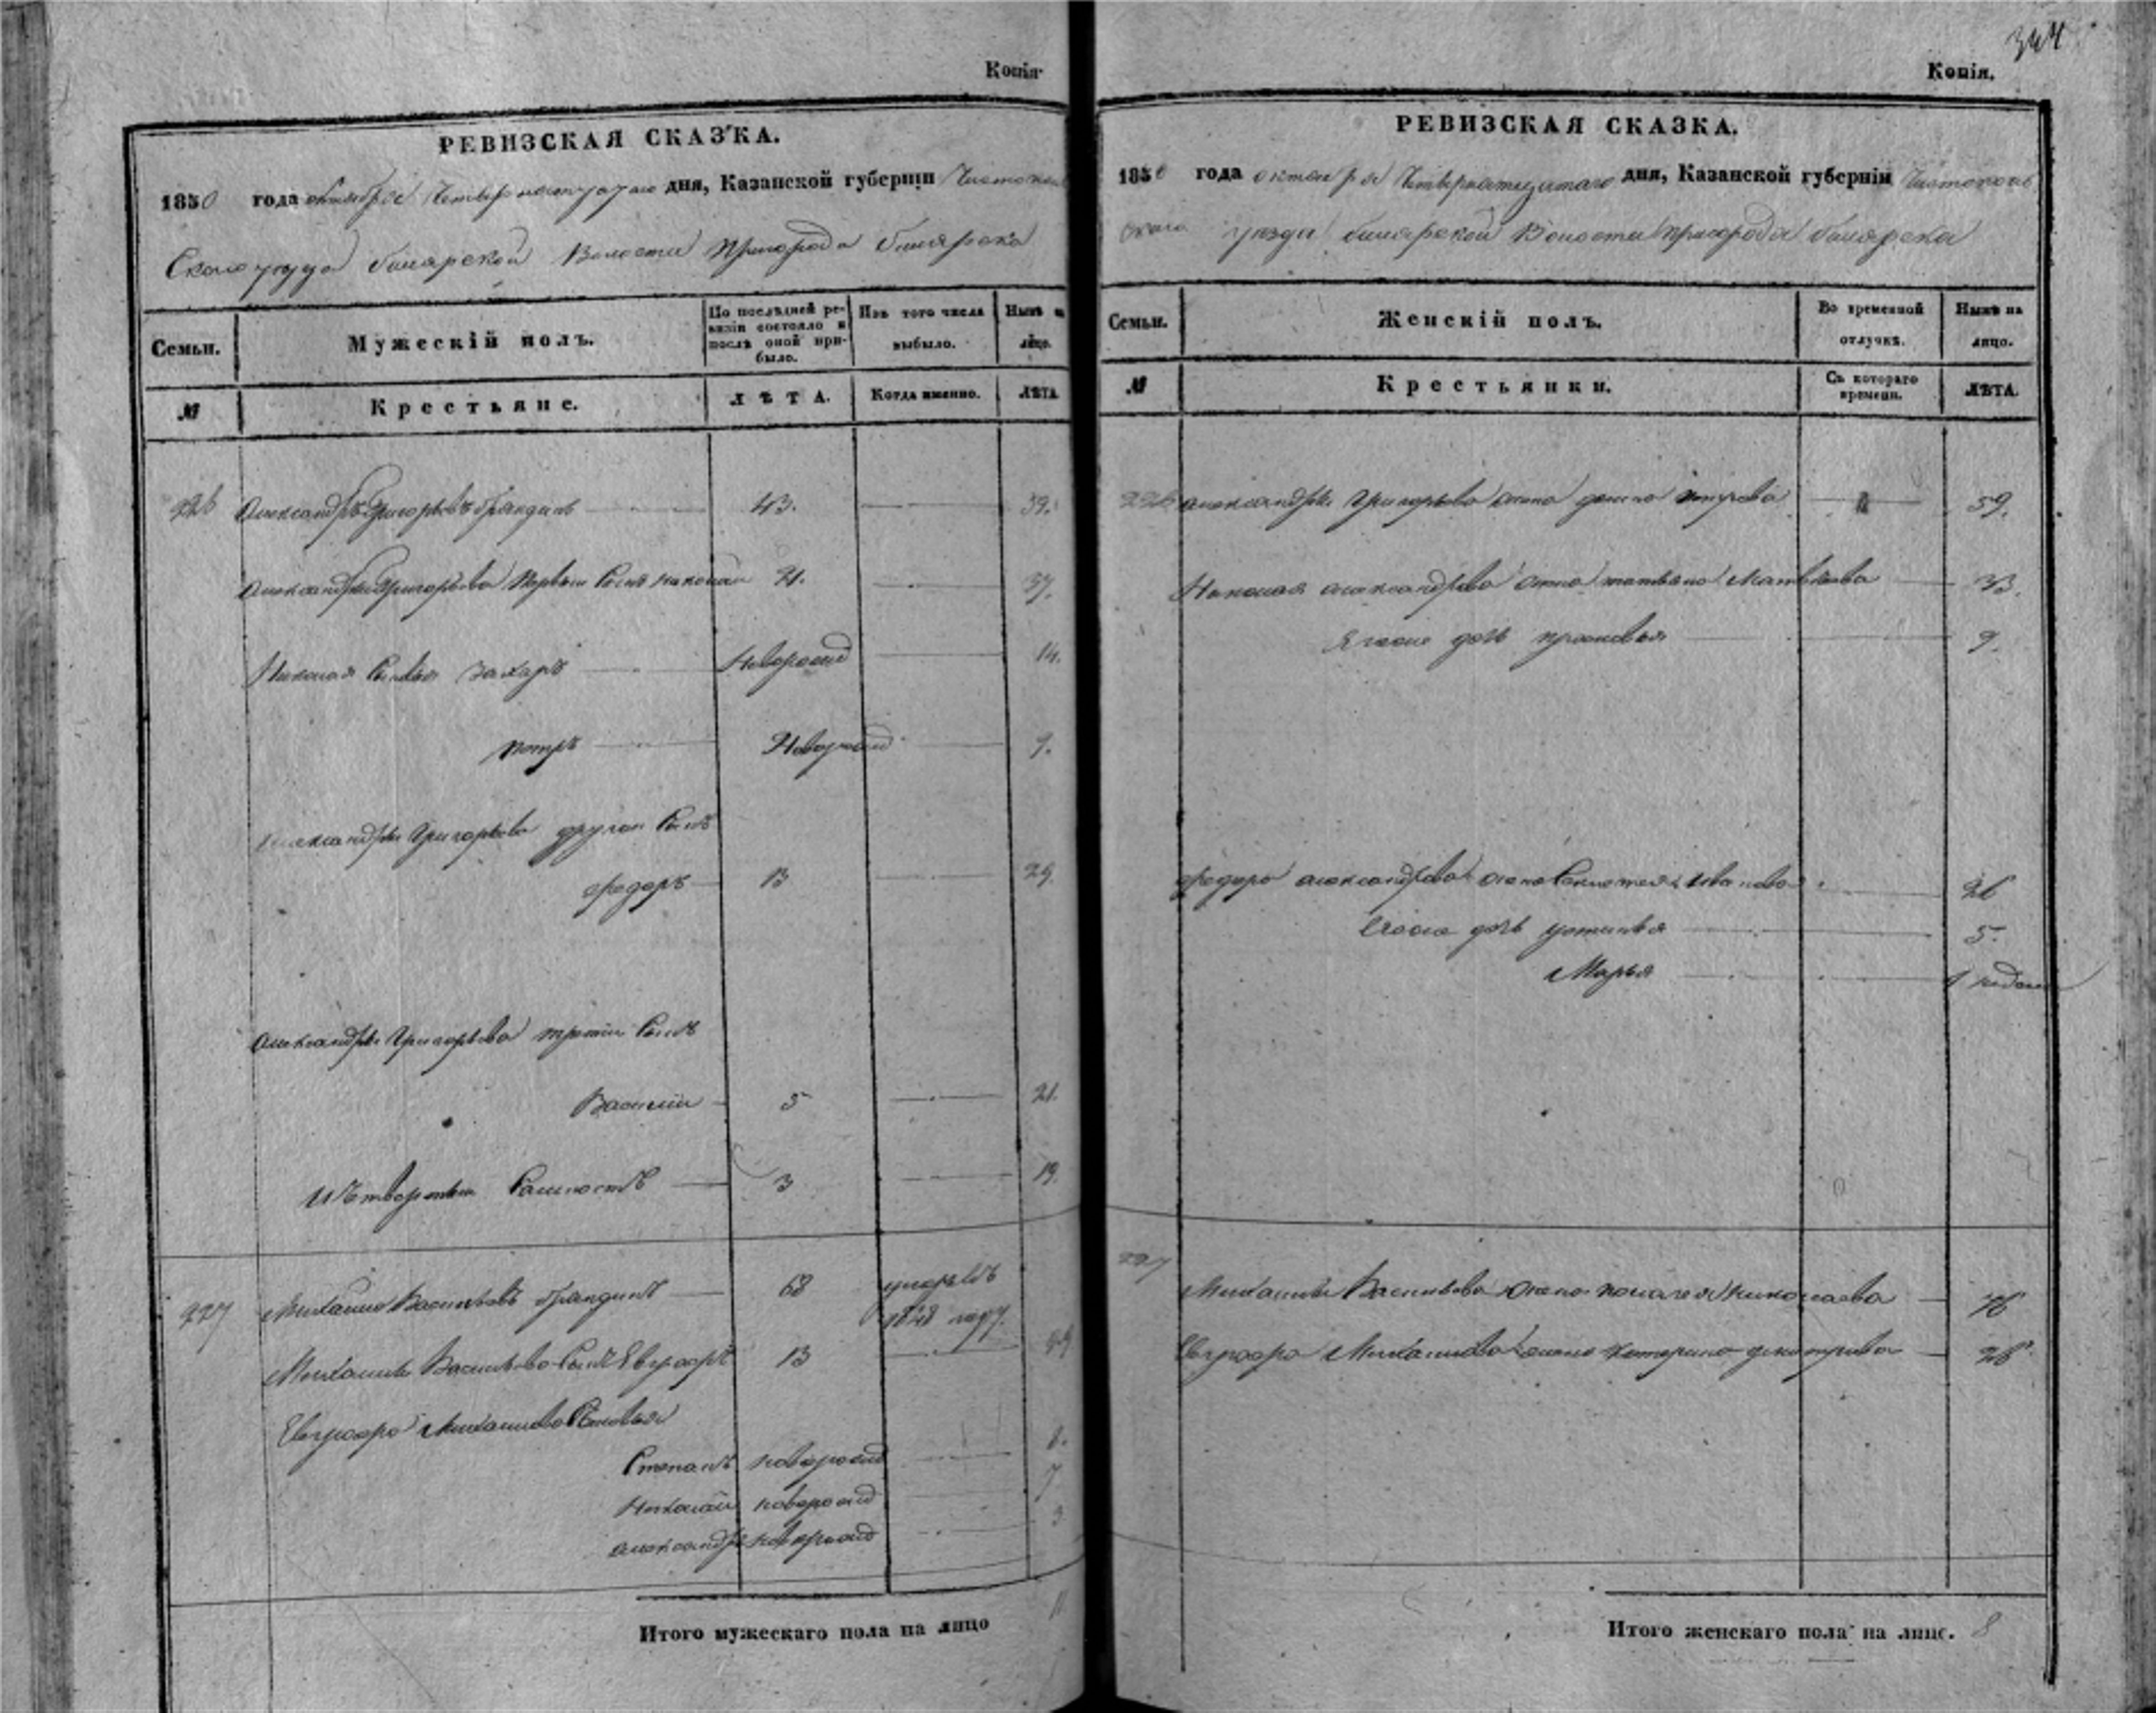 Копія
РЕВИЗСКАЯ СКАЗКА.
1850 года октября Четырнатцатаго дня, Казанской губерніи Чистополь
Скаго уезда билярской Волости Пригорода билярска
Семьи.
Мужескій полъ.
По послѣдней ревизіи состояло и послѣ оной прибыло.
Изъ того числа выбыло.
Нынѣ на лицо.
№
Крестьяне.
ЛѢТА.
Когда именно.
ЛѢТА.
226 Александръ Григорьевъ 43. 59.
Александра Григорьева Первый Сынъ николай 21. 37.
Николая Сыновья Захаръ Новорожд 14.
петръ Новорожд 9.
Александра Григорьева другой Сынъ
федоръ 13 29.
Александра Григорьева третий Сынъ
Василий 5 21.
3 19.
227 Михайло Васильевъ 68 умеръ въ
1848 году.
Михайлы Васильева Сынъ Евграфъ 13 29
Евграфа Михайлова Сыновья
Степанъ новорожд 8.
Николай новорожд 7
александръ новорожд 3
Итого мужескаго пола на лицо 11
344
Копія.
РЕВИЗСКАЯ СКАЗКА.
1850 года октября Четырнатцатаго дня, Казанской губерніи Чистополь
скаго уезда билярской Волости пригорода билярска
Семьи.
Женскій полъ.
Во временной отлучкѣ.
Нынѣ на лицо.
№
Крестьянки.
Съ котораго времени.
ЛѢТА.
226 александры Григорьева жена 59.
Николая александрова жена татьяна Матвѣева 33.
Ягоже дочь прасковья 9.
федора александрова жена Иванова 26
Егоже дочь устинья 5.
Марья 1 недели
227
Михайлы Васильева жена пелагея николаева 76
Евграфа Михайлова жена катерина дмитрива 28
Итого женскаго пола на лицо. 8